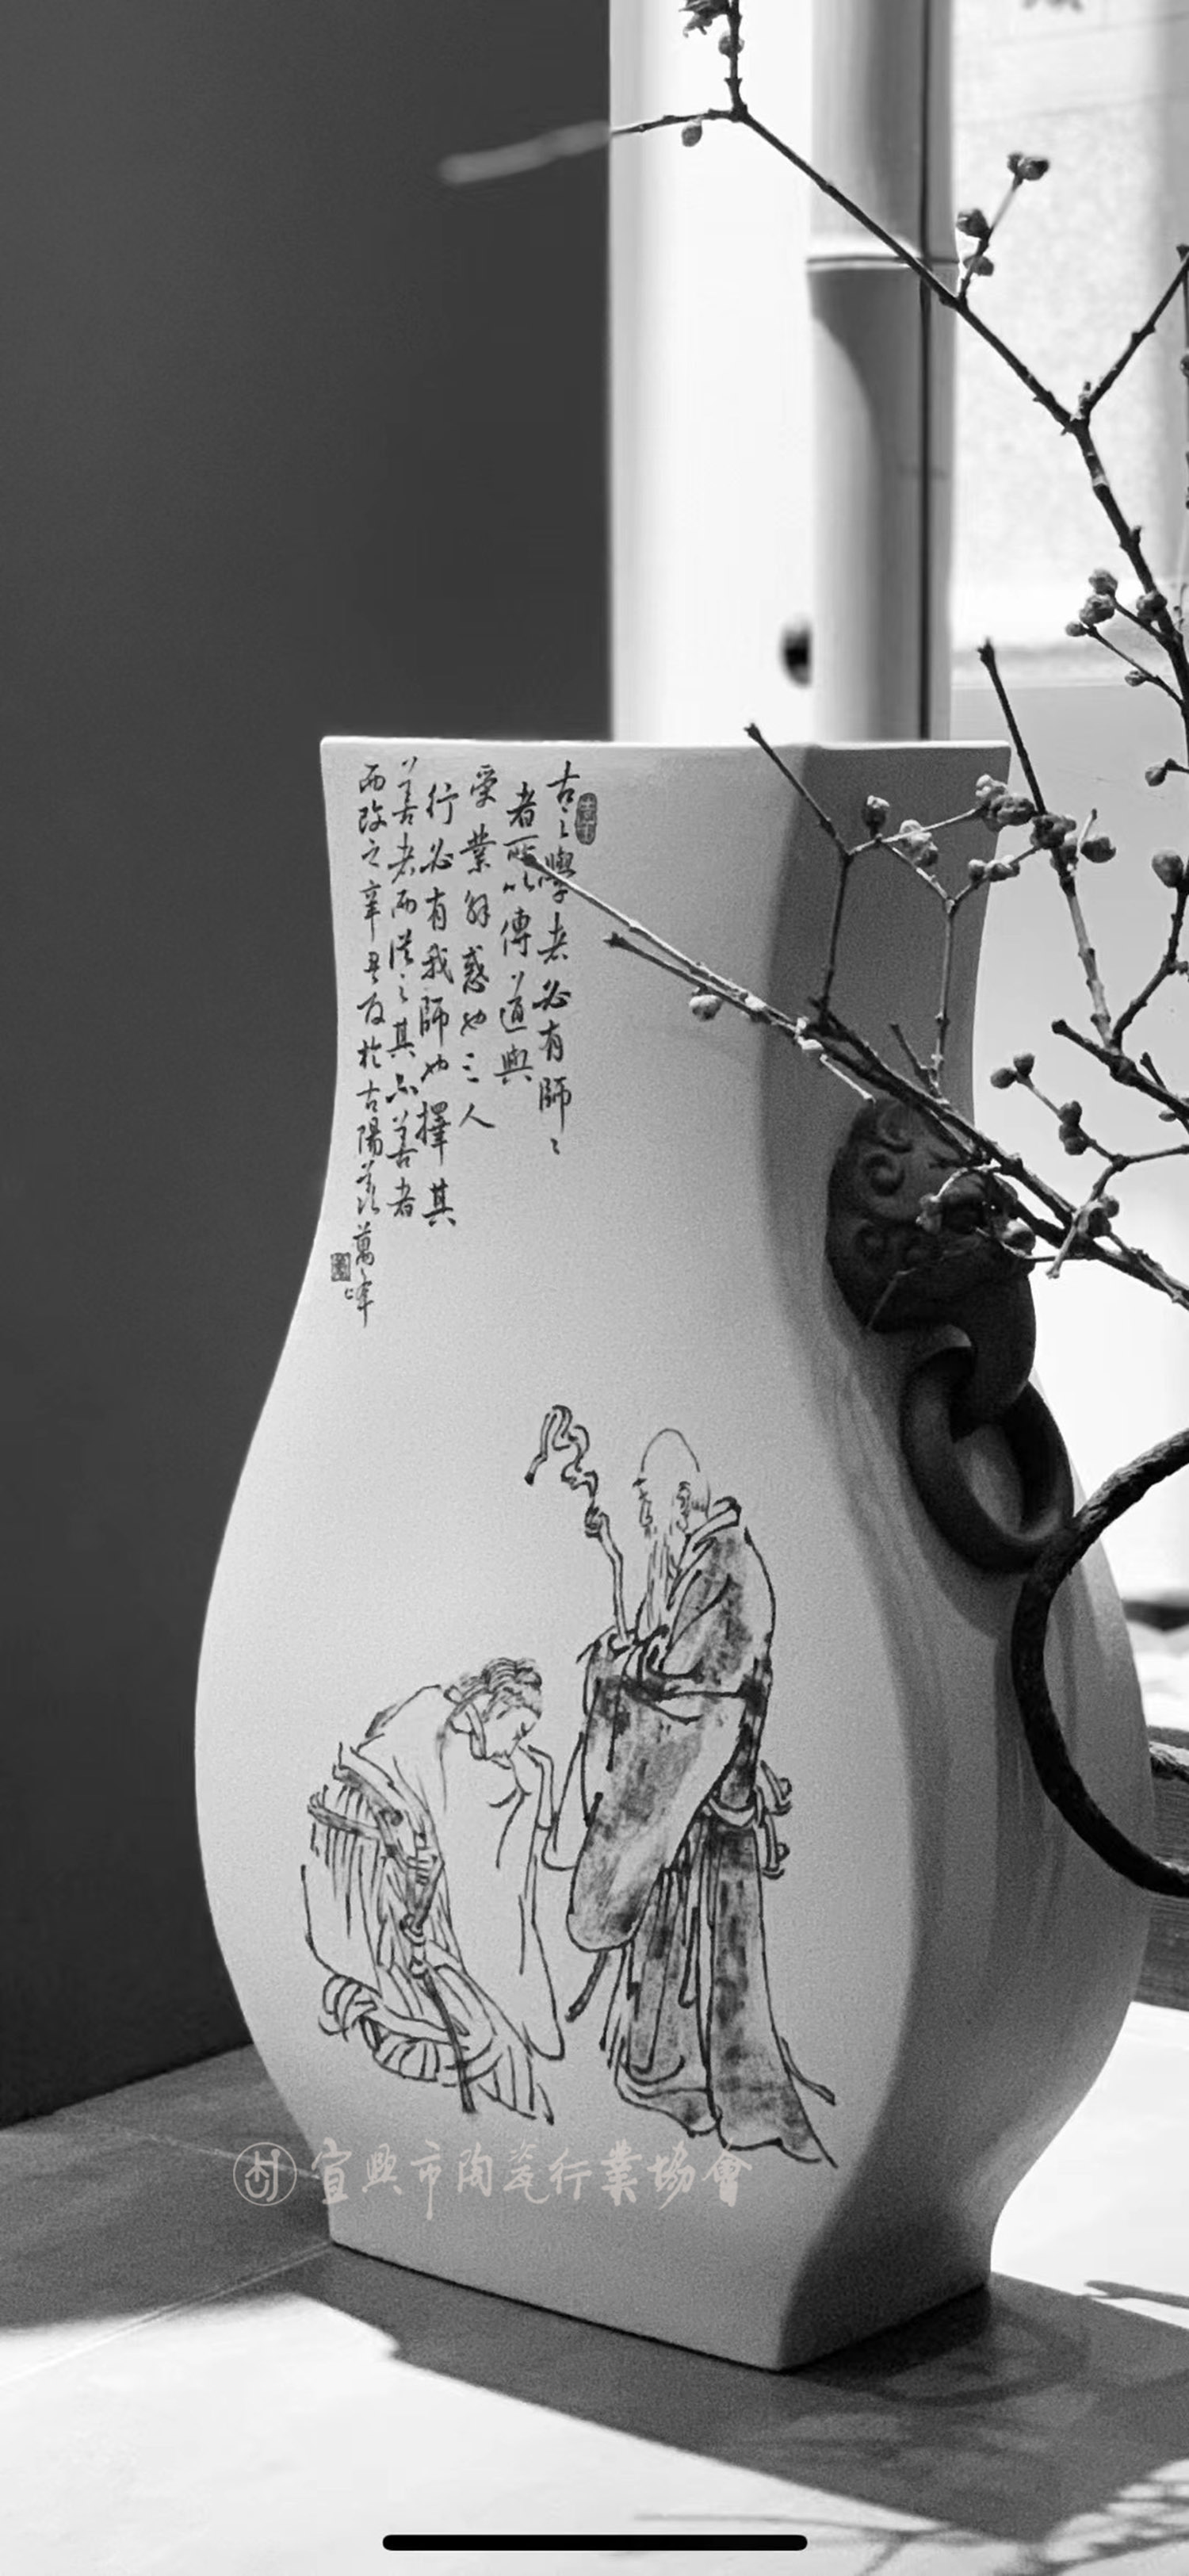 古之學者必有師〻
者所以傳道與
受業解惑也三人
行必有我師也擇其
善者而從之其不善者
而改之辛丑夏於古陽羨萬峰
宜興市陶瓷行業協會